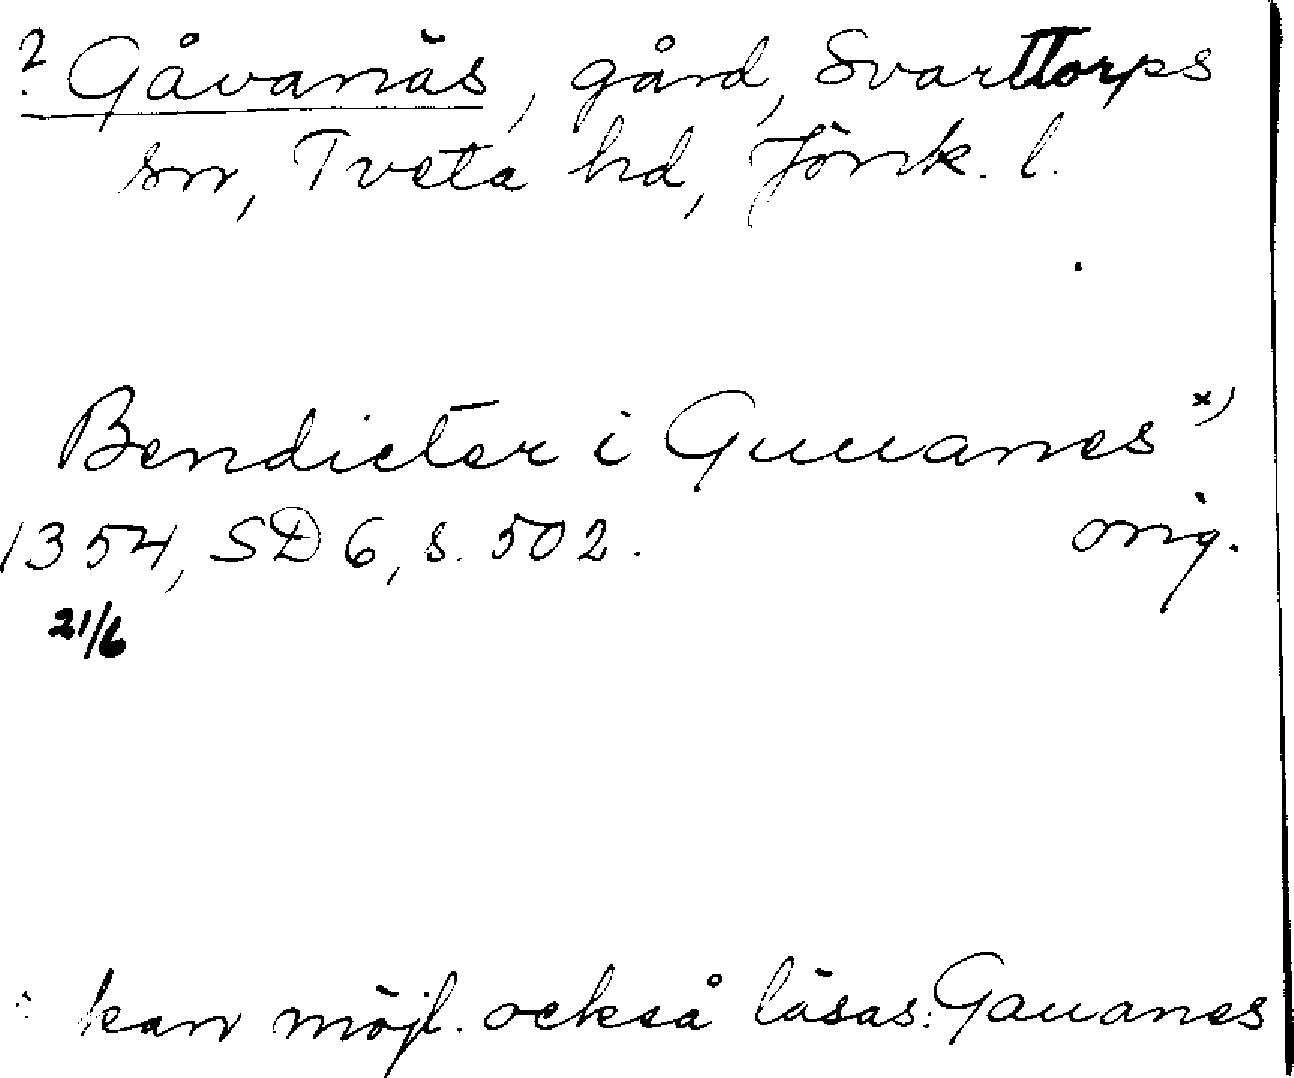 ? Gåvanäs, gård, Svarttorps
sn, Tveta hd, Jönk. l.
Bendicter i Guuanes x)
1354, SD 6, s. 502. orig.
21/6
kan möjl. också läsas: Gauanes